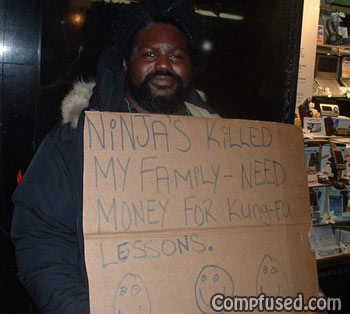 NINJA'S KILLED
MY FAMILY - NEED
MONEY FOR KUNG-FU
LESSONS.
Compfused.com